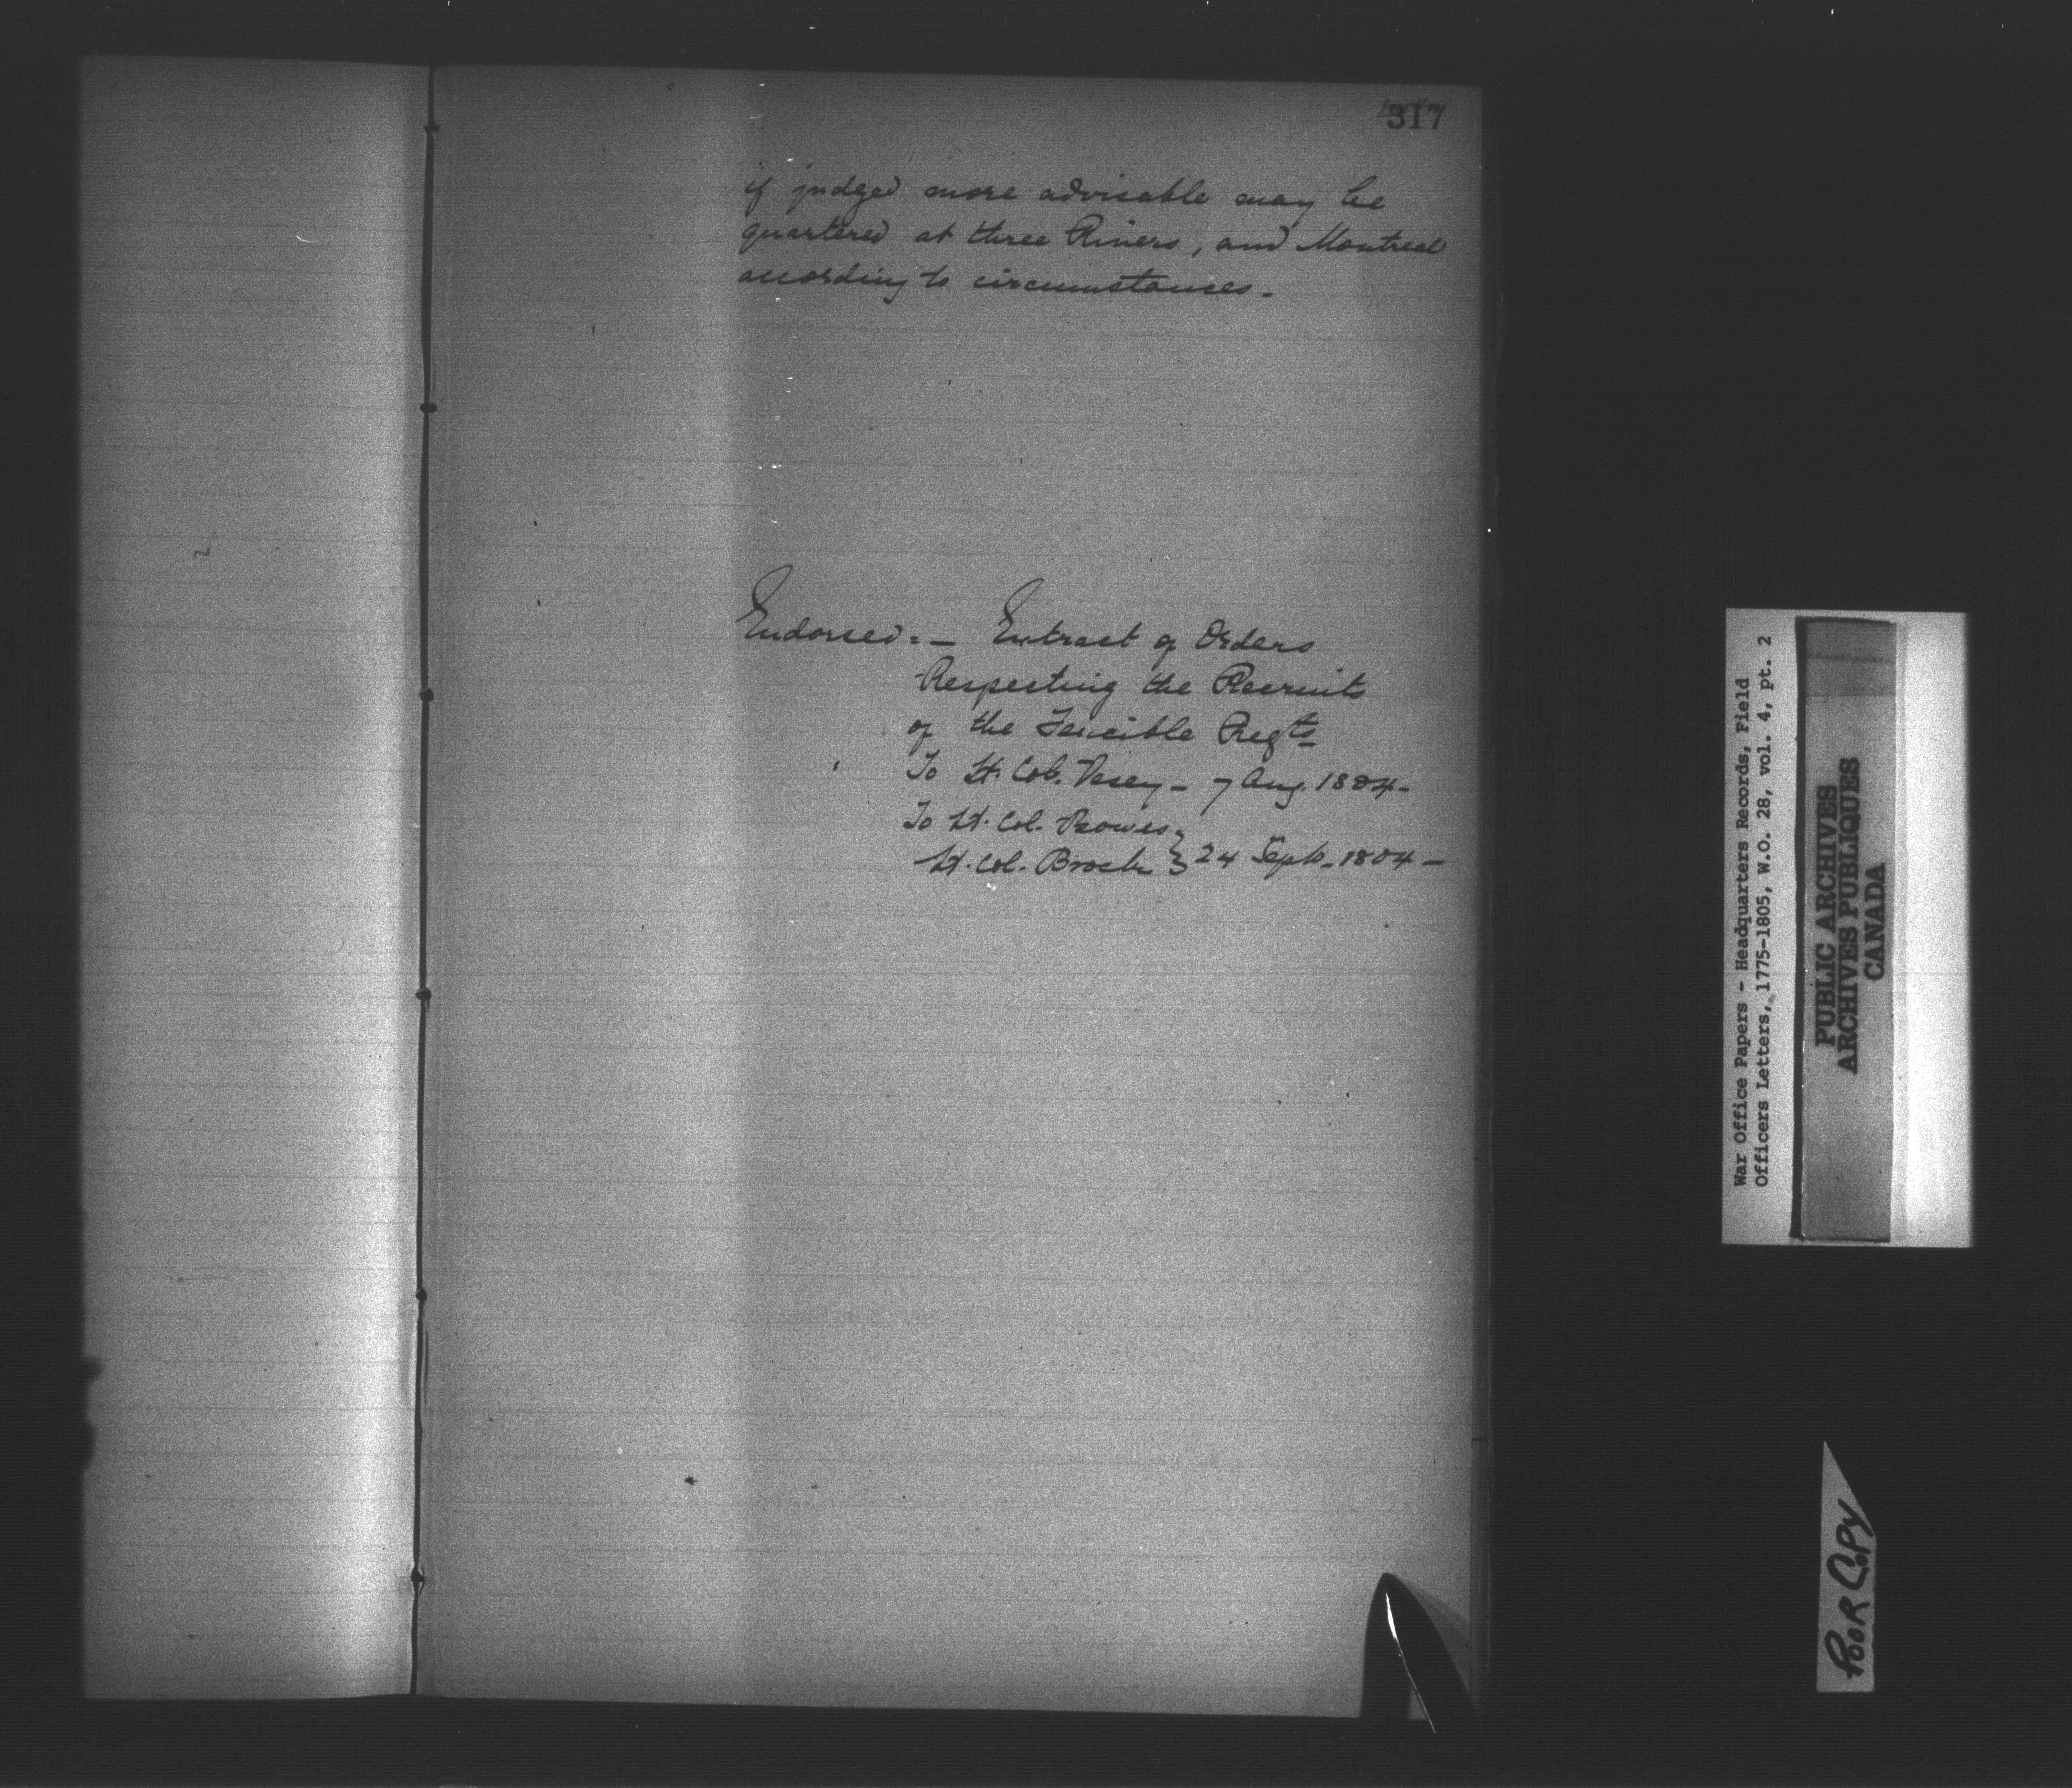 317
if judged more advisable may be
quartered at three Rivers, and Montreal
according to circumstances.
Endorsed:- Extract of Orders
Respecting the Recruits
of the Fencible Regts
To Lt. Col. Vesey - 7 Aug. 1804-
To Lt. Col. Bowes
Lt. Col. Brock } 24 Sept. 1804-
War Office Papers - Headquarters Records, Field
Officers Letters, 1775-1805, W.O. 28, vol. 4, pt. 2
PUBLIC ARCHIVES
ARCHIVES PUBLIQUES
CANADA
POOR COPY